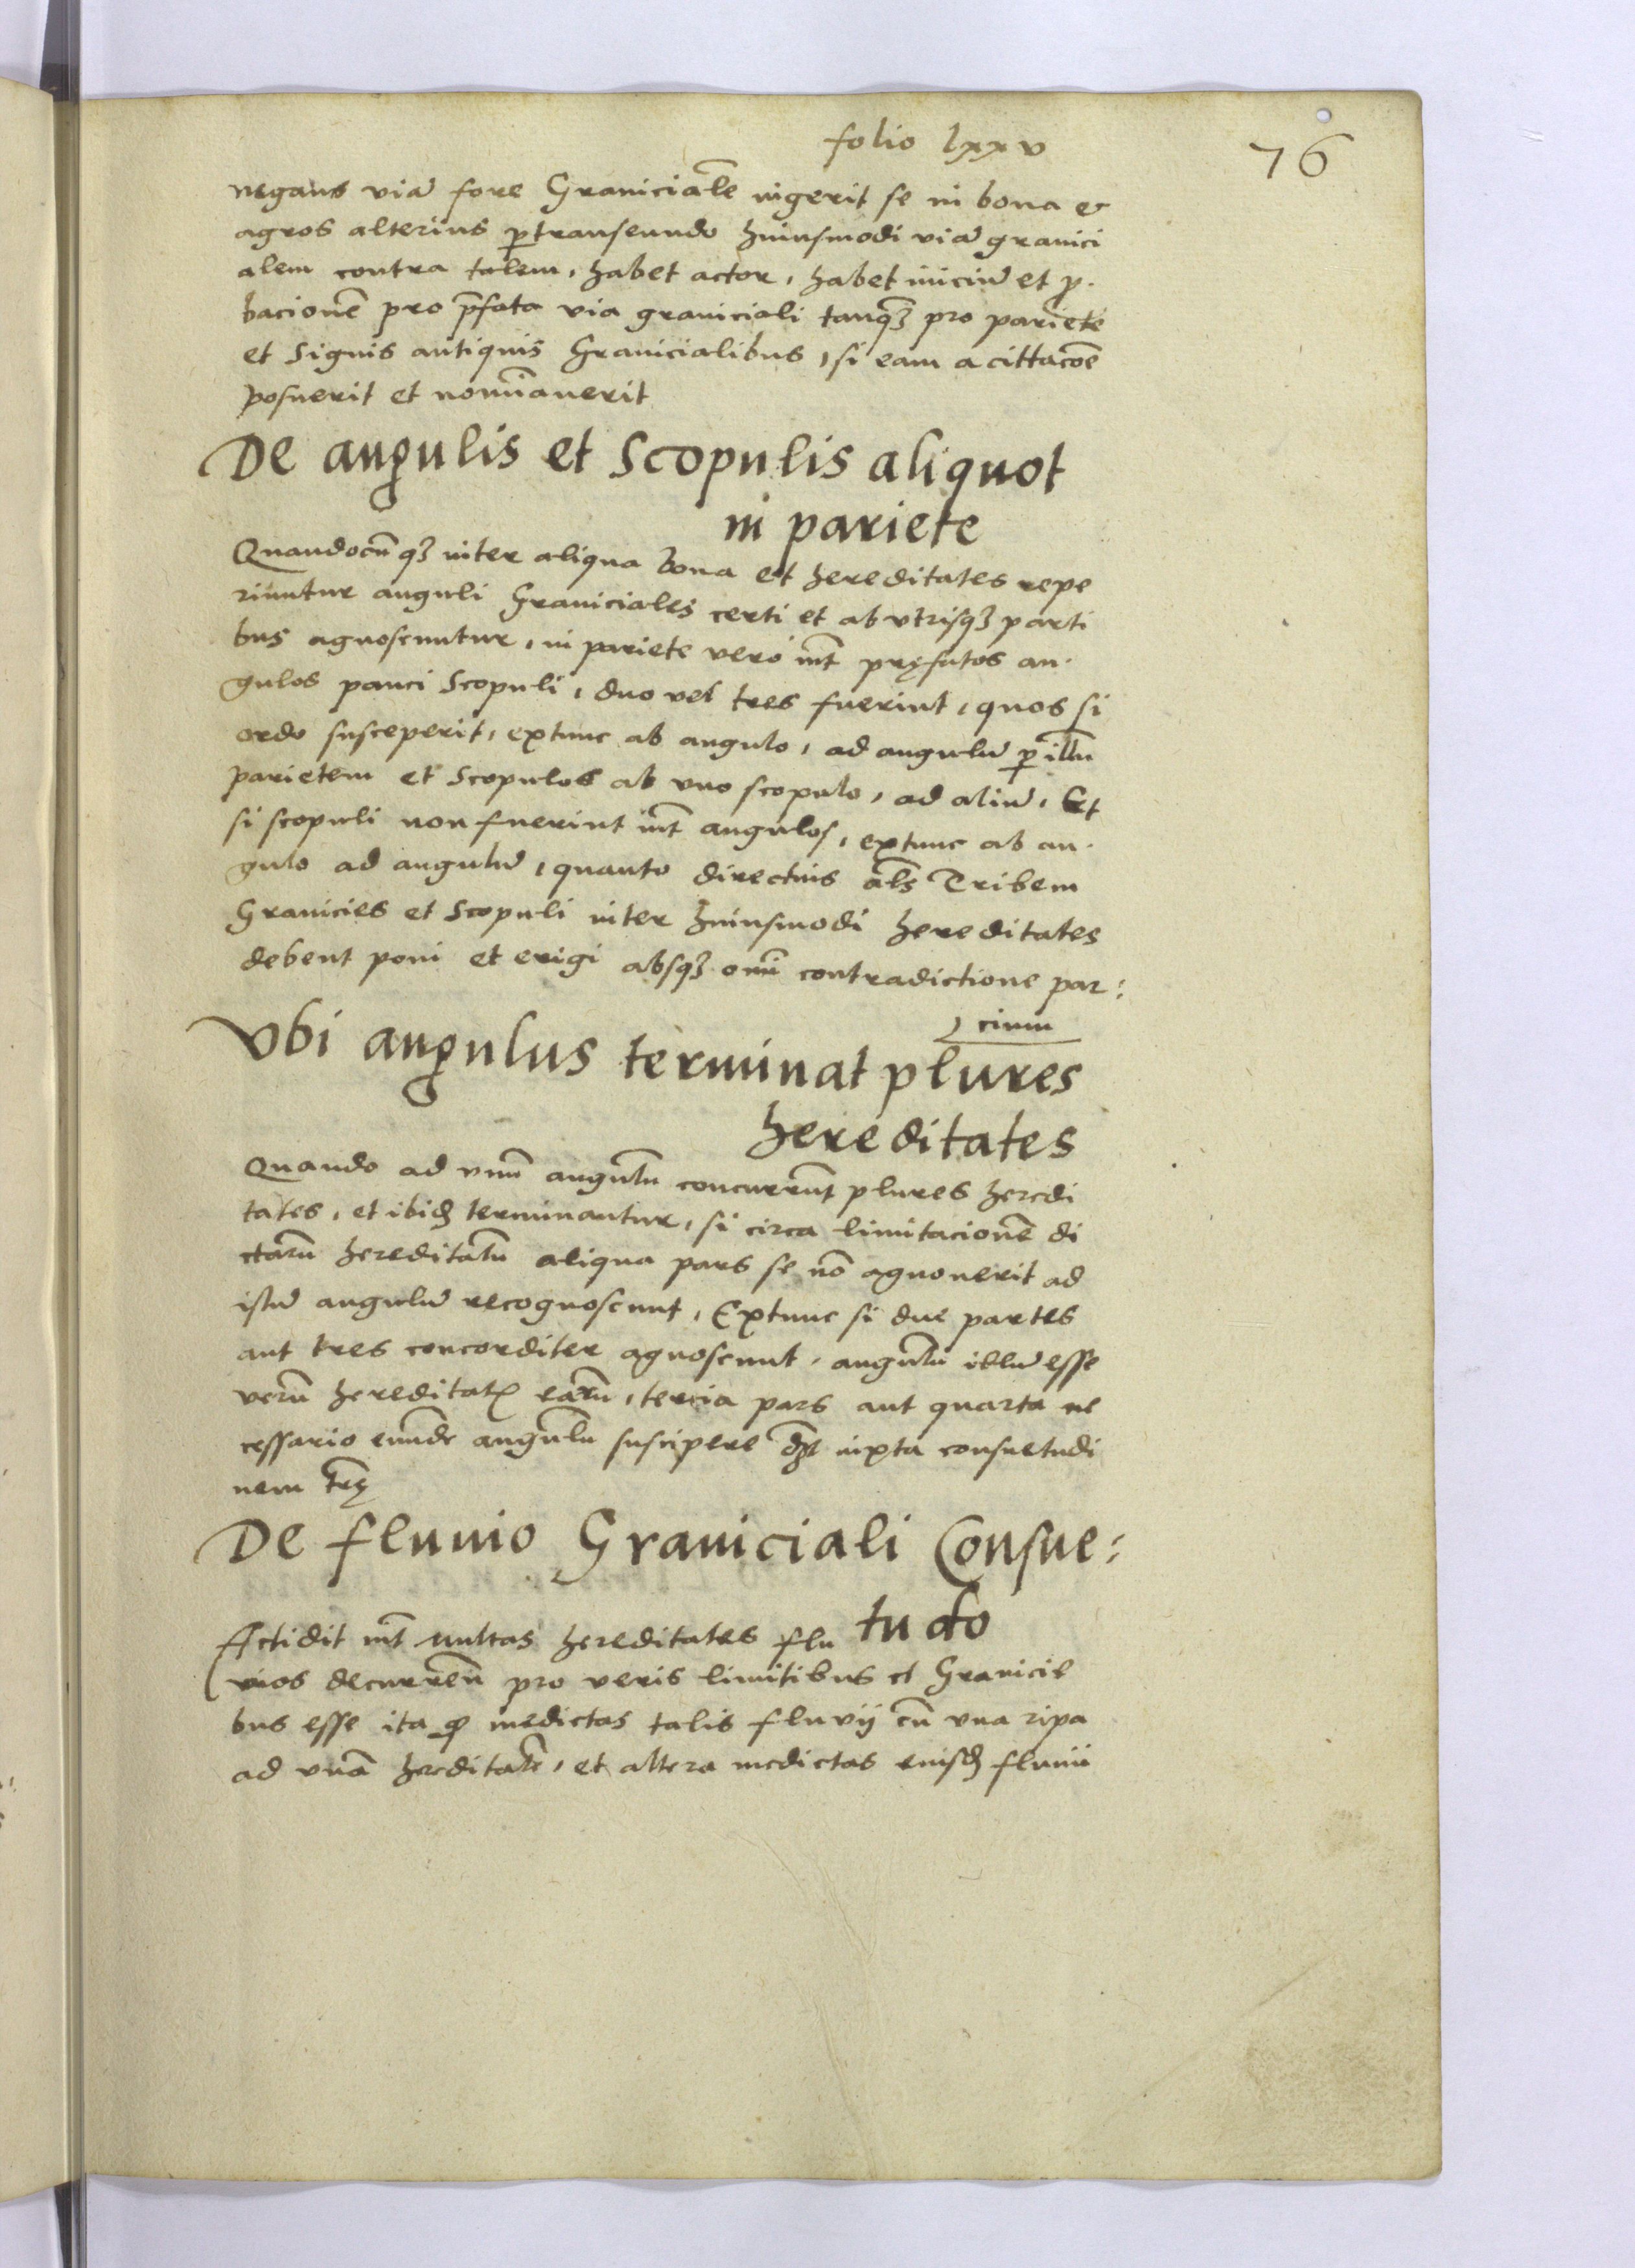 folio lxxv
76
negans viā fore Graniciale͂ ingerit se in bona et
agros alterius p̱transeundo huiusmodi viā granici
alem contra talem, habet actor, habet iniciū et ꝓ-
bacionē pro p̄fata via graniciali tanqꝫ pro pariete
et Signis antiquis Granicialibus, si eam a cittacōe
posuerit et nomīauerit
De angulis et Scopulis aliquot
in pariete
Quandocūqꝫ inter aliqua bona et hereditates repe
riuntur anguli Graniciales certi et ab vtrisqꝫ parti
bus agnoscuntur, in pariete vero int̄ pręfatos an-
gulos pauci Scopuli, duo vel tres fuerint, quos si
ordo susceperit, extunc ab angulo, ad angulū ꝑ illū
parietem et Scopulos ab vno scopulo, ad aliū, Et
si scopuli non fuerint int̄ angulos, extunc ab an-
gulo ad angulū, quanto directius al̄s Tribem
Granicies et Scopuli inter huiusmodi hereditates
debent poni et erigi absqꝫ om̄i contradictione par:
cium
Vbi angulus terminat plures
hereditates
Quando ad vnū angulū concurrūt plures heredi
tates, et ibiđ terminantur, si circa limitacionē di
ctarū hereditatū aliqua pars se nō agnouerit ad
istū angulū recognoscunt, Extunc si due partes
aut tres concorditer agnoscunt, angulū illū esse
verū hereditatꝭ earū, tercia pars aut quarta ne
cessario eundē angulū suscipere dꝫt iuxta consuetudi
nem terrę
De fluuio Graniciali Consue:
tudo
Actidit int̄ multas hereditates flu
vios decurrēn pro veris limitibus et Granicie
bus esse ita ꝙ medietas talis fluvij cū vna ripa
ad vnā hereditatē, et altera medietas eiusđ fluuii